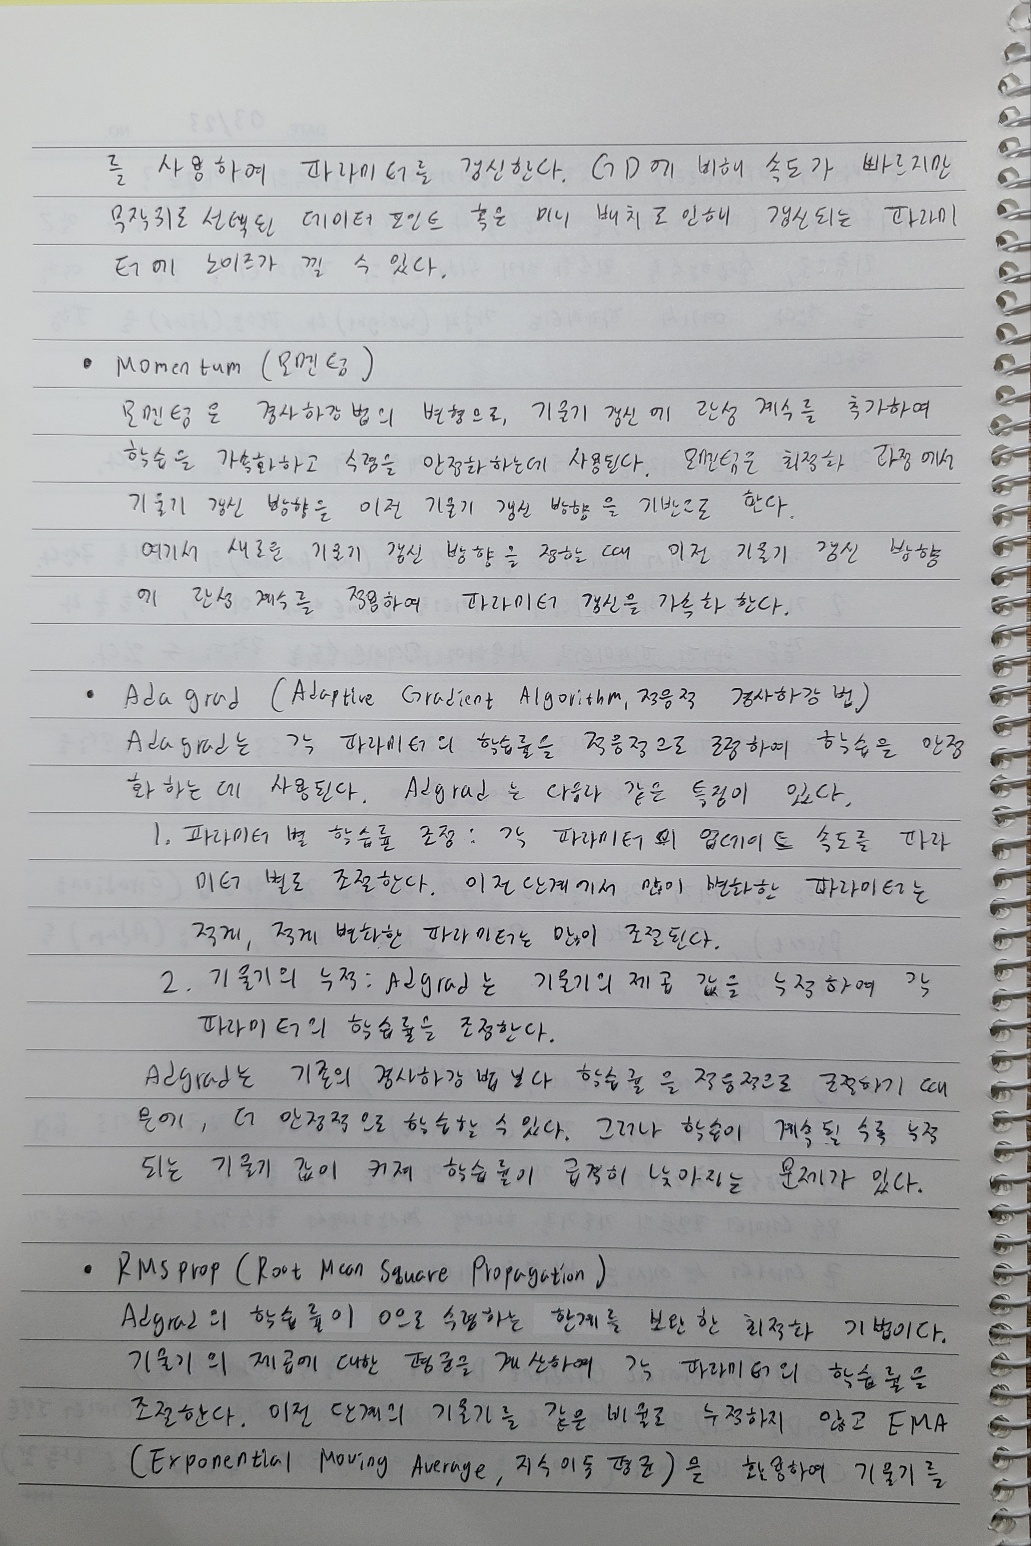 를 사용하여 파라미터를 갱신한다. GD에 비해 속도가 빠르지만
무작위로 선택된 데이터 포인트 혹은 미니 배치로 인해 갱신되는 파라미
터에 노이즈가 낄 수 있다.
• Momentum (모멘텀)
모멘텀은 경사하강법의 변형으로, 기울기 갱신에 관성 계수를 추가하여
학습을 가속화하고 수렴을 안정화하는데 사용된다. 모멘텀은 최적화 과정에서
기울기 갱신 방향을 이전 기울기 갱신 방향을 기반으로 한다.
여기서 새로운 기울기 갱신 방향을 정할 때 이전 기울기 갱신 방향
에 관성 계수를 적용하여 파라미터 갱신을 가속화 한다.
• Adagrad (Adaptive Gradient Algorithm, 적응적 경사하강법)
Adagrad는 각 파라미터의 학습률을 적응적으로 조정하여 학습을 안정
화하는데 사용된다. Adgrad는 다음과 같은 특징이 있다.
1. 파라미터 별 학습률 조정 : 각 파라미터의 업데이트 속도를 파라
미터 별로 조절한다. 이전 단계에서 많이 변화한 파라미터는
적게, 적게 변화한 파라미터는 많이 조절된다.
2. 기울기의 누적 : Adgrad는 기울기의 제곱 값을 누적하여 각
파라미터의 학습률을 조정한다.
Adgrad는 기존의 경사하강법보다 학습률을 적응적으로 조절하기 때
문에, 더 안정적으로 학습할 수 있다. 그러나 학습이 계속 될 수록 누적
되는 기울기 값이 커져 학습률이 급격히 낮아지는 문제가 있다.
• RMSprop (Root Mean Square Propagation)
Adgrad의 학습률이 0으로 수렴하는 한계를 보완한 최적화 기법이다.
기울기의 제곱에 대한 평균을 계산하여 각 파라미터의 학습률을
조절한다. 이전 단계의 기울기를 같은 비율로 누적하지 않고 EMA
(Exponential Moving Average, 지수이동평균)을 활용하여 기울기를